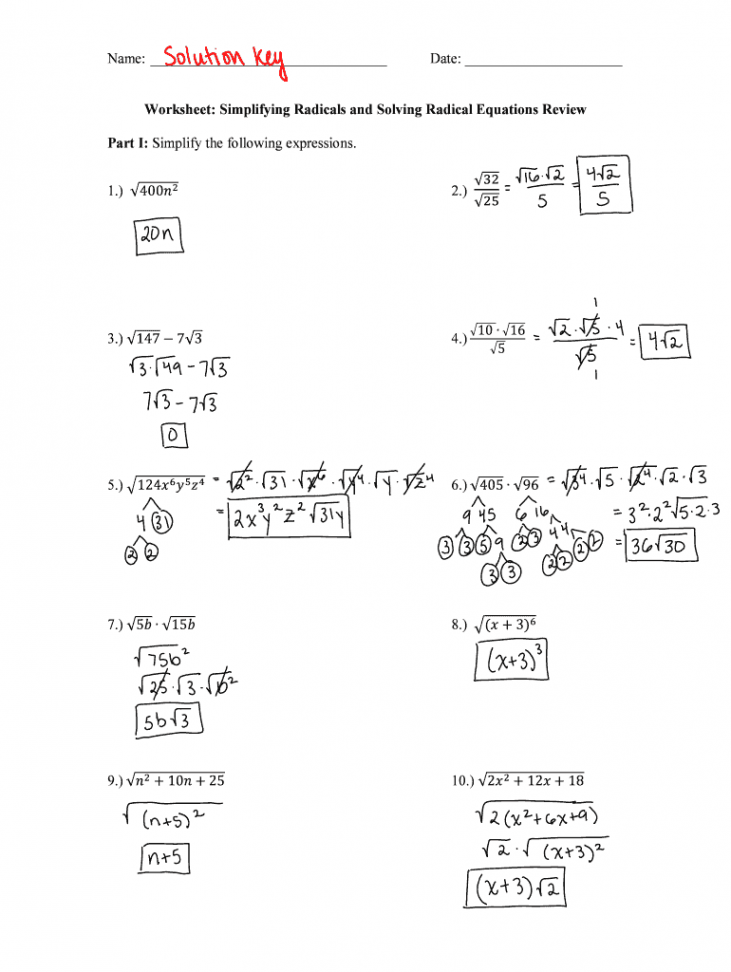 Name: Solution Key Date:
Worksheet: Simplifying Radicals and Solving Radical Equations Review
Part I: Simplify the following expressions.
1.) √400n²
20n
2.) √32/√25 = √16·√2/5 = 4√2/5
3.) √147 – 7√3
√3·√49 – 7√3
7√3 – 7√3
0
4.) √10·√16/√5 = √2·√5·4/√5 = 4√2
1
1
5.) √124x⁶y⁵z⁴ = √2²·√31·√x⁶·√y⁴·√y·√z⁴
= 2x³y²z²√31y
4 31
2 2
6.) √405·√96 = √3⁴·√5·√2⁴·√2·√3
9 45 6 16 = 3²·2²√5·2·3
3 3 5 9 2 3 4 4 = 36√30
3 3 2 2 2 2
7.) √5b·√15b
√75b²
√25·√3·√b²
5b√3
8.) √(x + 3)⁶
(x+3)³
9.) √n² + 10n + 25
√(n+5)²
n+5
10.) √2x² + 12x + 18
√2(x²+6x+9)
√2·√(x+3)²
(x+3)√2